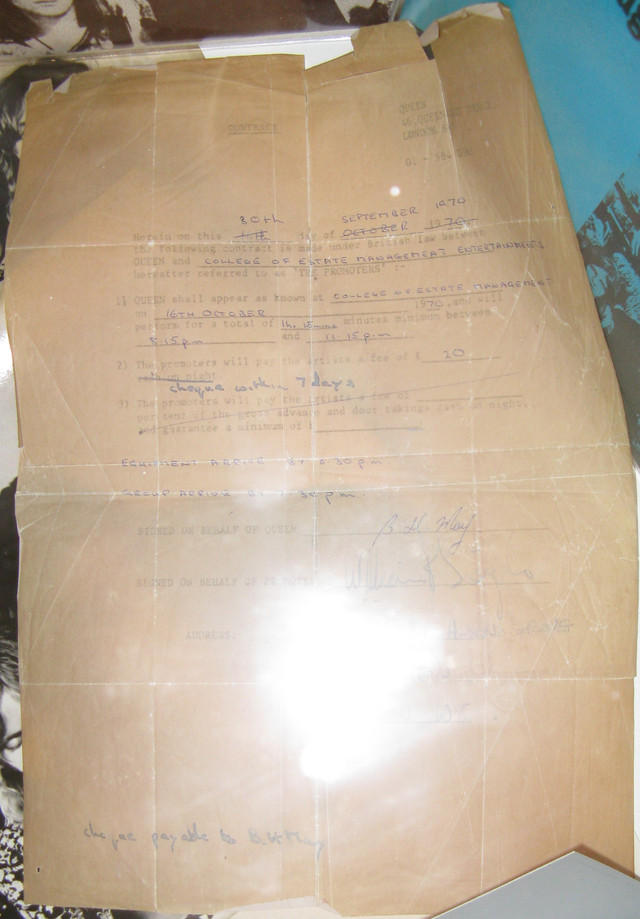 QUEEN
LONDON
CONTRACT
01 - 58
30th SEPTEMBER 1970
Herein on this 11th day of OCTOBER 1970
the following contract is made under British law between
QUEEN and COLLEGE OF ESTATE MANAGEMENT ENTERTAINMENTS
hereafter referred to as 'THE PROMOTERS' :-
1) QUEEN shall appear as known at COLLEGE OF ESTATE MANAGEMENT
on 16TH OCTOBER 1970, and will
perform for a total of 1hr 15mins minutes minimum between
8.15pm and 11.15pm.
2) The promoters will pay the artists a fee of £ 20
cash on night
cheque within 7 days
3) The promoters will pay the artists a fee of
per cent of the gross advance and door takings cash on night,
and guarantee a minimum of £
EQUIPMENT ARRIVE BY 6.30 pm
GROUP ARRIVE BY 7.30 p.m.
SIGNED ON BEHALF OF QUEEN B. H. May
SIGNED ON BEHALF OF PROMOTERS
ADDRESS:
cheque payable to B.H. May